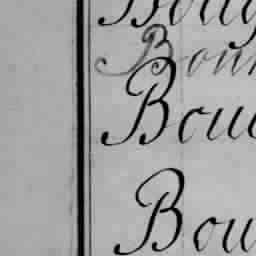 Boug
Bour
Bou
Bou